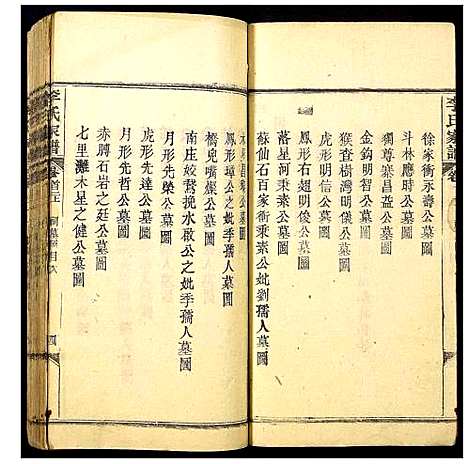 李氏家譜
徐家衝永壽公墓圖
斗林應時公墓圖
獨尊寨昌益公墓圖
金鈎明智公墓圖
猴查樹灣明儀公墓圖
虎形明信公墓圖
鳳形右超明俊公墓圖
落星河秉素公墓圖
蘇仙石百家衝秉素公妣劉孺人墓圖
鳳形璋公之妣季孺人墓圖
橋兒嘴燦公墓圖
南庄蛟鴛挽水啟公之妣季孺人墓圖
月形先榮公墓圖
虎形先達公墓圖
月形先哲公墓圖
赤脚石岩之廷公墓圖
七里灘木星之健公墓圖
李氏家譜
卷首三
祠墓墅目次
四